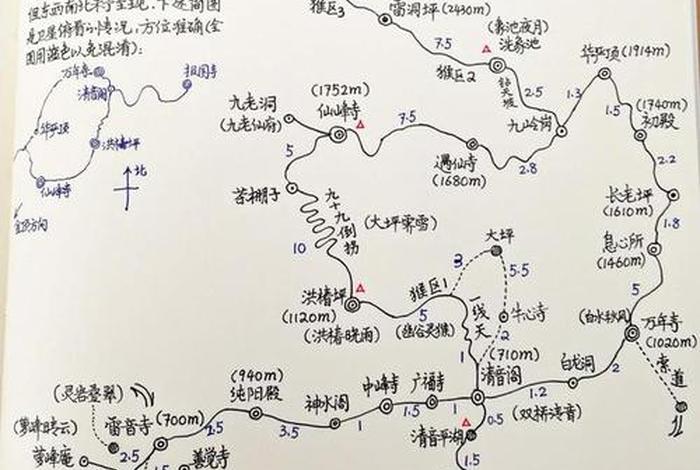 猴区3
雷洞坪(2430m)
7.5
(象池夜月)
洗象池
猴区2
钻天坡
2.5
九岭岗
1.3
华严顶(1914m)
1.5
(1740m)
初殿
2.2
长老坪
(1610m)
1.8
息心所
(1460m)
5
(白水秋风)
万年寺
(1020m)
索道
2
白龙洞
1.2
九老洞
(九老仙府)
(1752m)
仙峰寺
7.5
遇仙寺
(1680m)
2.8
5
茶棚子
九十九倒拐
(大坪霁雪)
10
洪椿坪
(1120m)
(洪椿晓雨)
猴区1
5
(幽谷灵猴)
一线天
大坪
3
5.5
牛心寺
2
1
(710m)
清音阁
(双桥清音)
0.5
清音平湖
1.5
1
广福寺
1.5
中峰寺
1
神水阁
3.5
(940m)
纯阳殿
2.5
(700m)
雷音寺
善觉寺
(灵岩叠翠)
(萝峰晴云)
萝峰庵
2.5
1.5
是卫星俯看的情况，方位准确(全
图用蓝色以免混淆)：
万年寺
清音阁
报国寺
华严顶
洪椿坪
仙峰寺
北
金顶方向